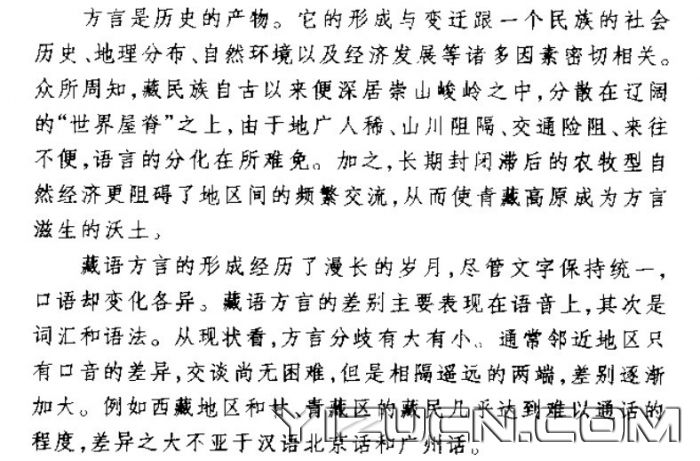 方言是历史的产物。它的形成与变迁跟一个民族的社会
历史、地理分布、自然环境以及经济发展等诸多因素密切相关。
众所周知,藏民族自古以来便深居崇山峻岭之中,分散在辽阔
的“世界屋脊”之上,由于地广人稀、山川阻隔、交通险阻、来往
不便,语言的分化在所难免。加之,长期封闭滞后的农牧型自
然经济更阻碍了地区间的频繁交流,从而使青藏高原成为方言
滋生的沃土。
藏语方言的形成经历了漫长的岁月,尽管文字保持统一,
口语却变化各异。藏语方言的差别主要表现在语音上,其次是
词汇和语法。从现状看,方言分歧有大有小。通常邻近地区只
有口音的差异,交谈尚无困难,但是相隔遥远的两端,差别逐渐
加大。例如西藏地区和甘、青藏区的藏民几乎达到难以通话的
程度,差异之大不亚于汉语北京话和广州话。
YIZUCN.COM